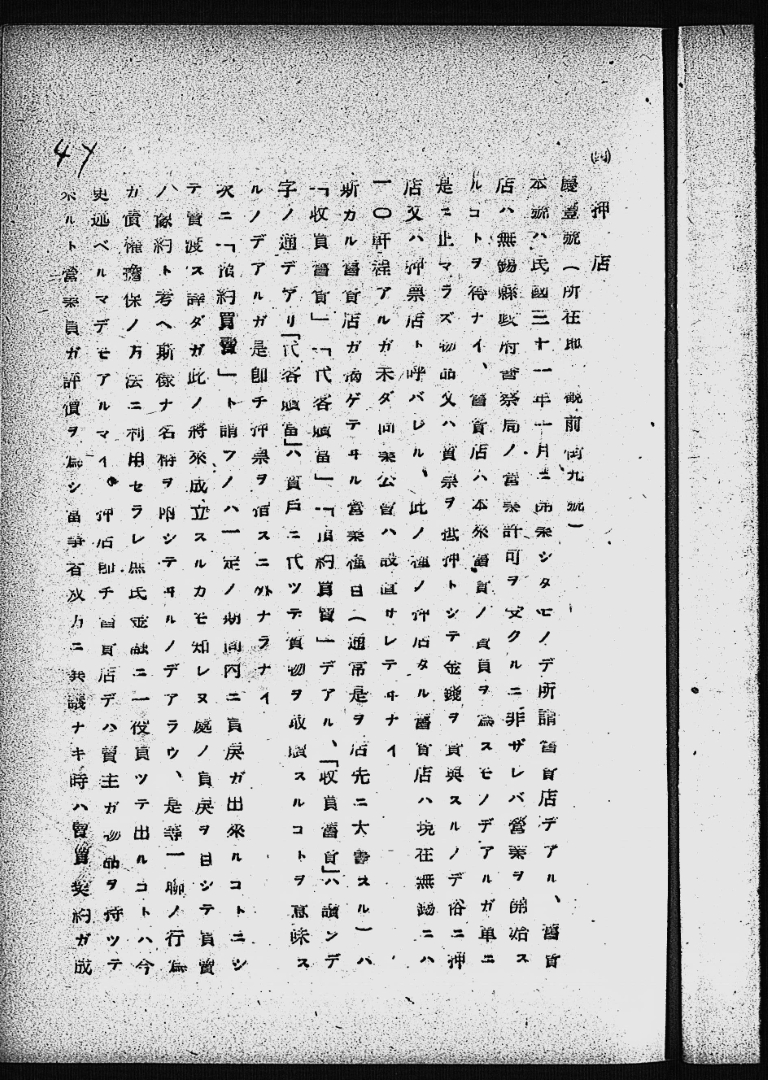 ㈣ 押店
慶豊號(所在地 觀前街九號)
本號ハ民國三十一年一月ニ開業シタモノデ所謂舊貨店デアル、舊貨
店ハ無錫縣政府警察局ノ營業許可ヲ受クルニ非ザレバ營業ヲ開始ス
ルコトヲ得ナイ、舊貨店ハ本來舊貨ノ賣買ヲ爲スモノデアルガ單ニ
是ニ止マラズ物品又ハ質票ヲ抵押トシテ金錢ヲ貸與スルノデ俗ニ押
店又ハ押票店ト呼バレル、此ノ種ノ押店タル舊貨店ハ現在無錫ニハ
一〇軒程アルガ未ダ同業公會ハ設置サレテヰナイ
斯カル舊貨店ガ揭ゲテヰル營業種目(通常是ヲ店先ニ大書スル)ハ
「收買舊貨」「代客贖當」「預約買賣」デアル、「收買舊貨」ハ讀ンデ
字ノ通デアリ「代客贖當」ハ質戶ニ代ツテ質物ヲ取贖スルコトヲ意味ス
ルノデアルガ是卽チ押票ヲ指スニ外ナラナイ
次ニ「預約買賣」ト謂フノハ一定ノ期間內ニ買戾ガ出來ルコトニシ
テ賣渡ス譯ダガ此ノ將來成立スルカモ知レヌ處ノ買戾ヲ目シテ買賣
ノ豫約ト考ヘ斯樣ナ名稱ヲ附シテヰルノデアラウ、是等一聯ノ行爲
ガ債權擔保ノ方法ニ利用セラレ庶民金融ニ一役買ツテ出ルコトハ今
更述ベルマデモアルマイ。押店卽チ舊貨店デハ賣主ガ物品ヲ持ツテ
來ルト營業員ガ評價ヲ爲シ當事者双方ニ異議ナキ時ハ賣買契約ガ成
47